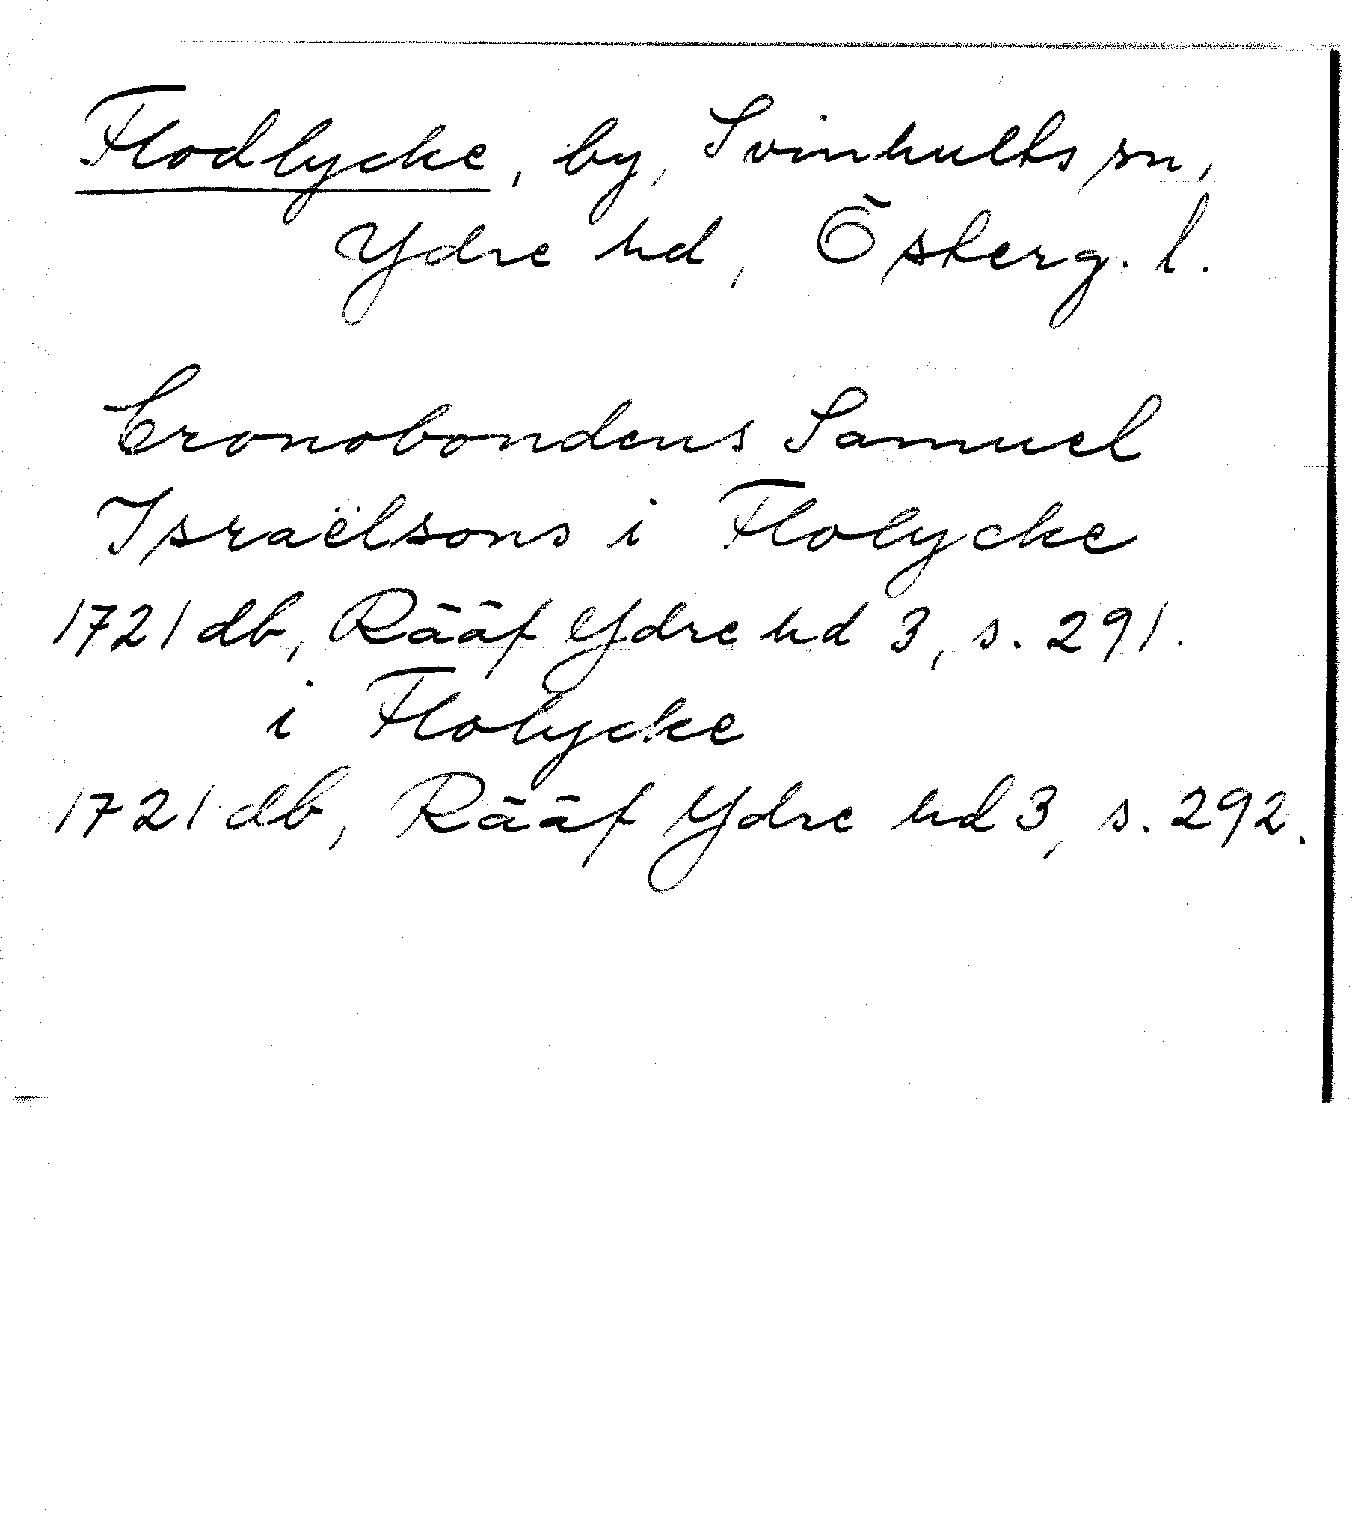 Flodlycke, by, Svinhults sn,
Ydre hd, Österg. l.
Cronobondens Samuel
Israëlsons i Flolycke
1721 db, Rääf Ydre hd 3, s. 291.
i Flolycke
1721 db, Rääf Ydre hd 3, s. 292.